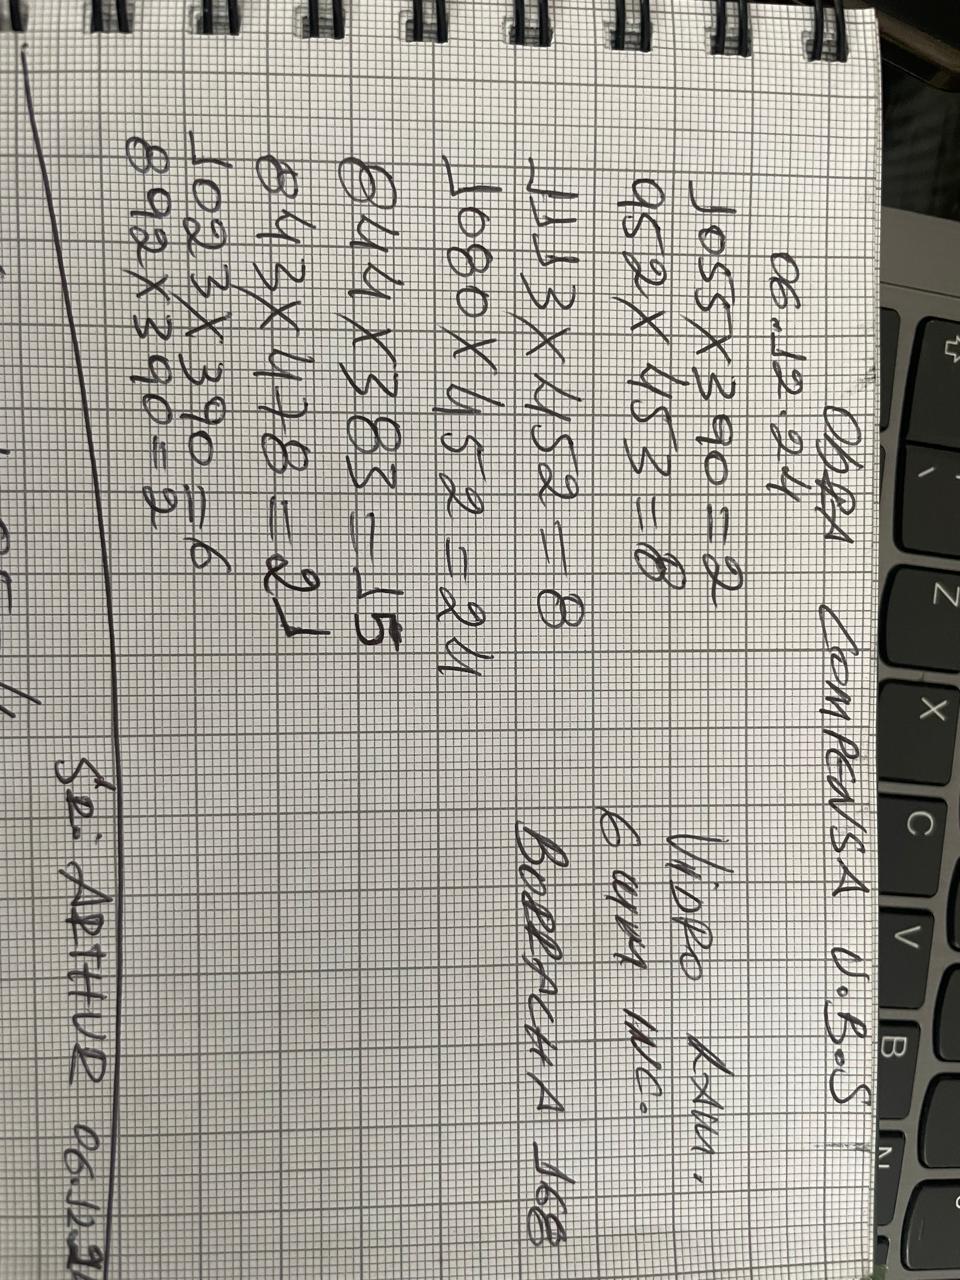 OBRA COMPENSA V.B.S
06.12.24
1055X390=2
952X453=8
113X452=8
1080X452=24
644X383=15
843X478=21
1023X390=6
892X390=2
VIDRO
6 MM INC.
BORRACHA 168
SR: ARTHUR 06.12.2
Z
X
C
V
B
N